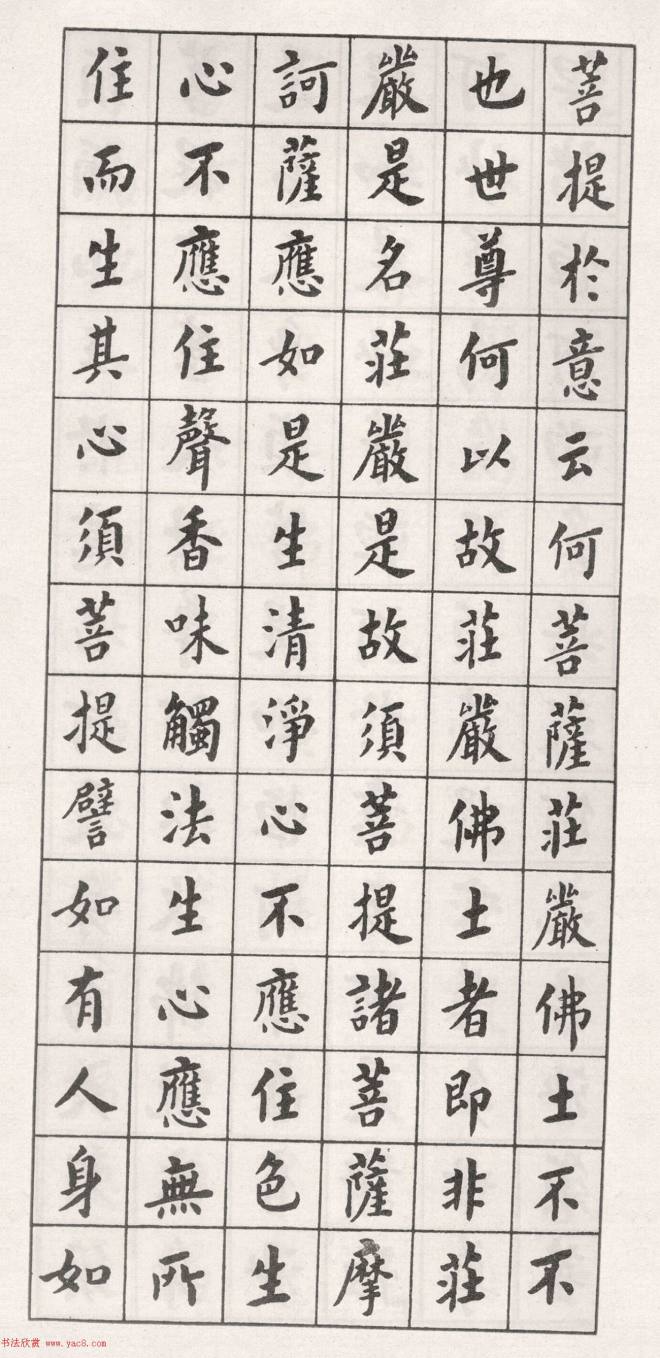 菩提於意云何菩薩莊嚴佛土不不
也世尊何以故莊嚴佛土者即非莊
嚴是名莊嚴是故須菩提諸菩薩摩
訶薩應如是生清淨心不應住色生
心不應住聲香味觸法生心應無所
住而生其心須菩提譬如有人身如
书法欣赏 www.yac8.com